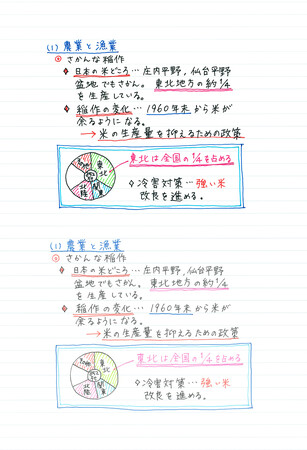 (1) 農業と漁業
◎ さかんな稲作
♦ 日本の米どころ… 庄内平野, 仙台平野
盆地でもさかん。 東北地方の約1/4
を生産している。
♦ 稲作の変化… 1960年末から米が
余るようになる。
→ 米の生産量を抑えるための政策
東北は全国の1/4を占める
東北
関東
北陸
◇冷害対策… 強い米
改良を進める。
(1) 農業と漁業
◎ さかんな稲作
♦ 日本の米どころ… 庄内平野, 仙台平野
盆地でもさかん。 東北地方の約1/4
を生産している。
♦ 稲作の変化… 1960年末から米が
余るようになる。
→ 米の生産量を抑えるための政策
東北は全国の1/4を占める
東北
関東
北陸
◇冷害対策… 強い米
改良を進める。